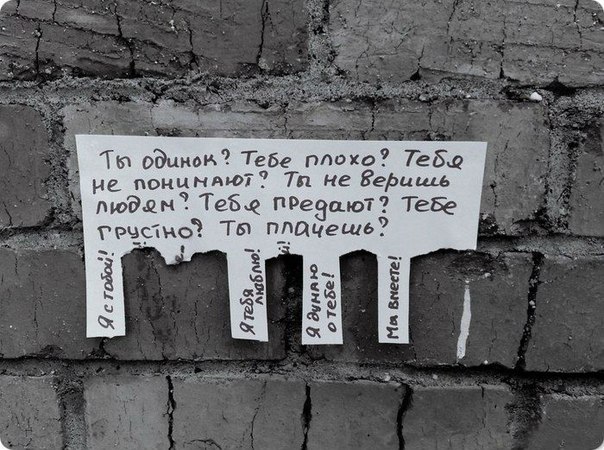 Ты одинок? Тебе плохо? Тебя
не понимают? Ты не веришь
людям? Тебя предают? Тебе
грустно? Ты плачешь?
Я с тобой!
Я тебя
люблю!
Я думаю
о тебе!
Мы вместе!